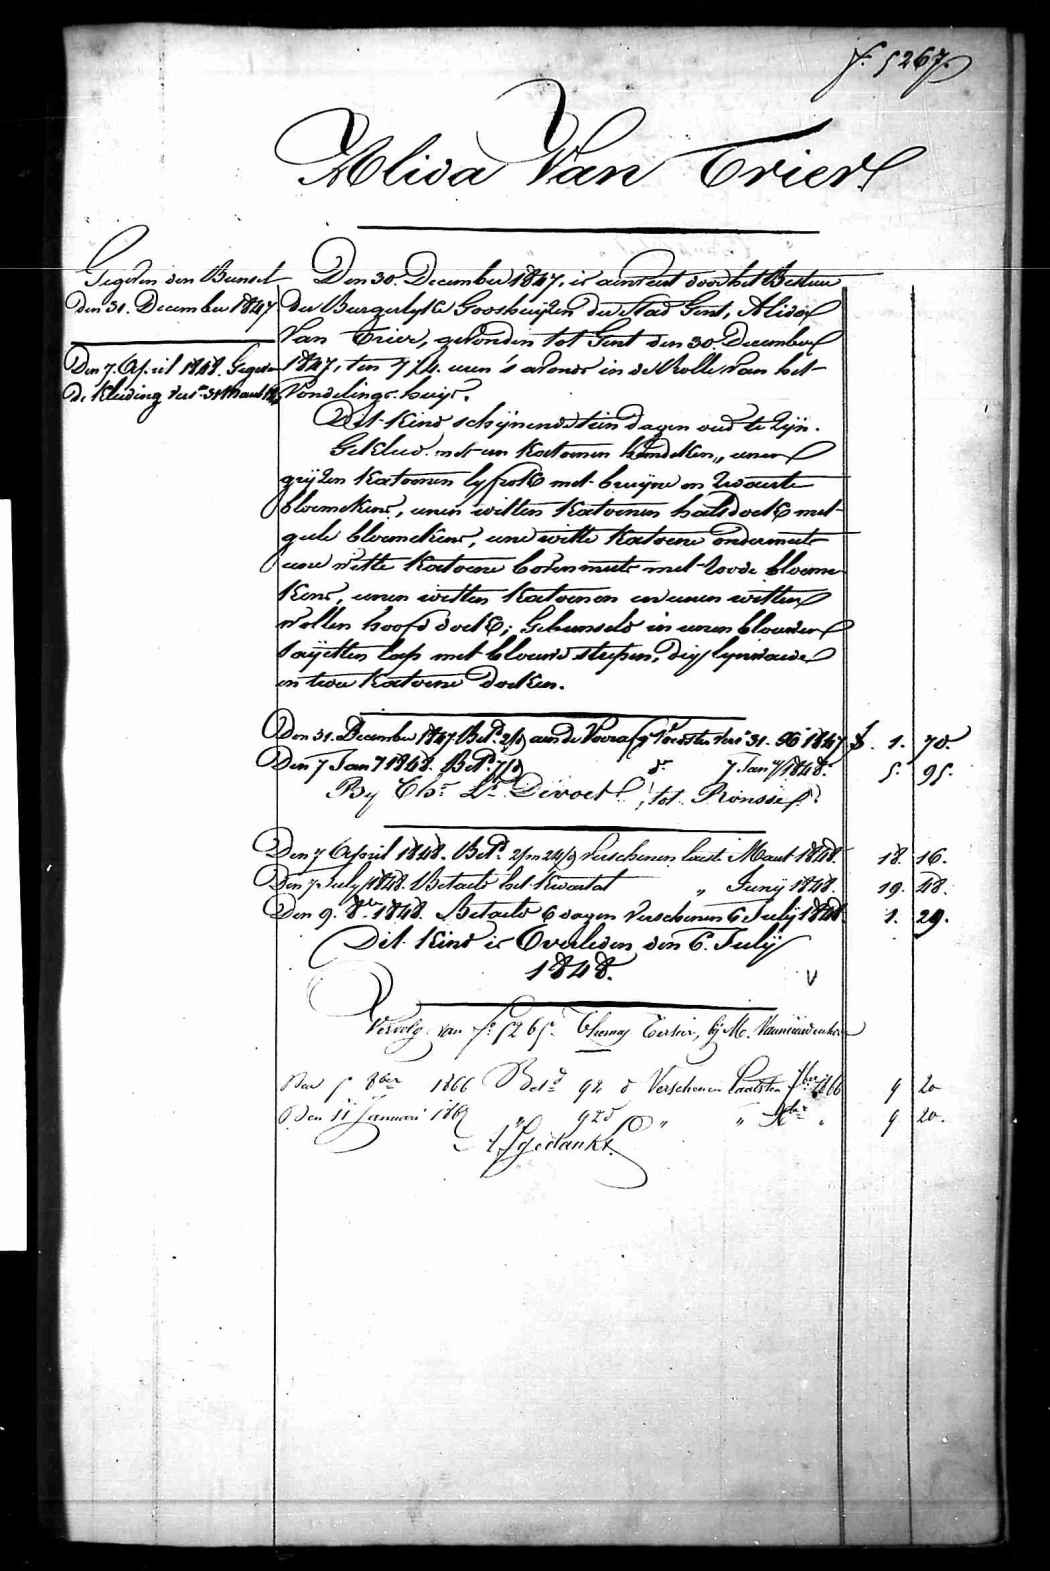 f. 5267.
Alida Van Trier
Gegeven den Bunsel
den 31. December 1847
Den 7. April 1848. Gegeven
De Kleeding vers. 31 Maart 1848
Den 30. December 1847, is aenveert door het Bestuer
der Burgerlyke Godshuyzen der Stad Gent, Alida
Van Trier, gevonden tot Gent den 30. December
1847, ten 7 1/4 uren 's avonds in de Rolle van het
Vondelings-huys.
Dit Kind schynende tien dagen oud te zyn.
Gekleed met een Katoenen hemdeken, eenen
gryzen Katoenen lyfrok met bruyne en zwarte
bloemekens, eenen witten Katoenen halsdoek met
gele bloemekens, eene witte Katoene ondermuts
eene witte Katoene bovenmuts met roode bloeme-
kens, eenen witten Katoenen en eenen witten
wollen hoofd doek; Gebunseld in eenen blauwen
sayetten lap met blauwe strepen, dry lynwaede
en twee Katoene doeken.
Den 31. December 1847 Bet.d 2/d aen de Voorafg. Voedster vers. 31. Xb 1847 f. 1. 70.
Den 7 Jan.y 1848. Bet.d 7/d d.o 7 Jan.y 1848. 5. 95.
By Ch.s L.s Devoet, tot Ronsse
Den 7 April 1848. Bet.d 2/m 24/d verschenen laest Maart 1848. 18. 16.
Den 7 July 1848. Betaeld het Kwartal „ Juny 1848. 19. 48.
Den 9. 8.br 1848. Betaeld 6 dagen verschenen 6 July 1848. 1. 29.
Dit Kind is Overleden den 6. July
1848.
V
Vervolg van f.o 5265. Thomas, by M.
Den 5 8ber 1866 Bet.d 92 d Verschenen laatsten 7ber 1866 9 20
Den 11 Januari 1867 „ 92 d „ „ Xber „ 9 20.
Afgedankt.